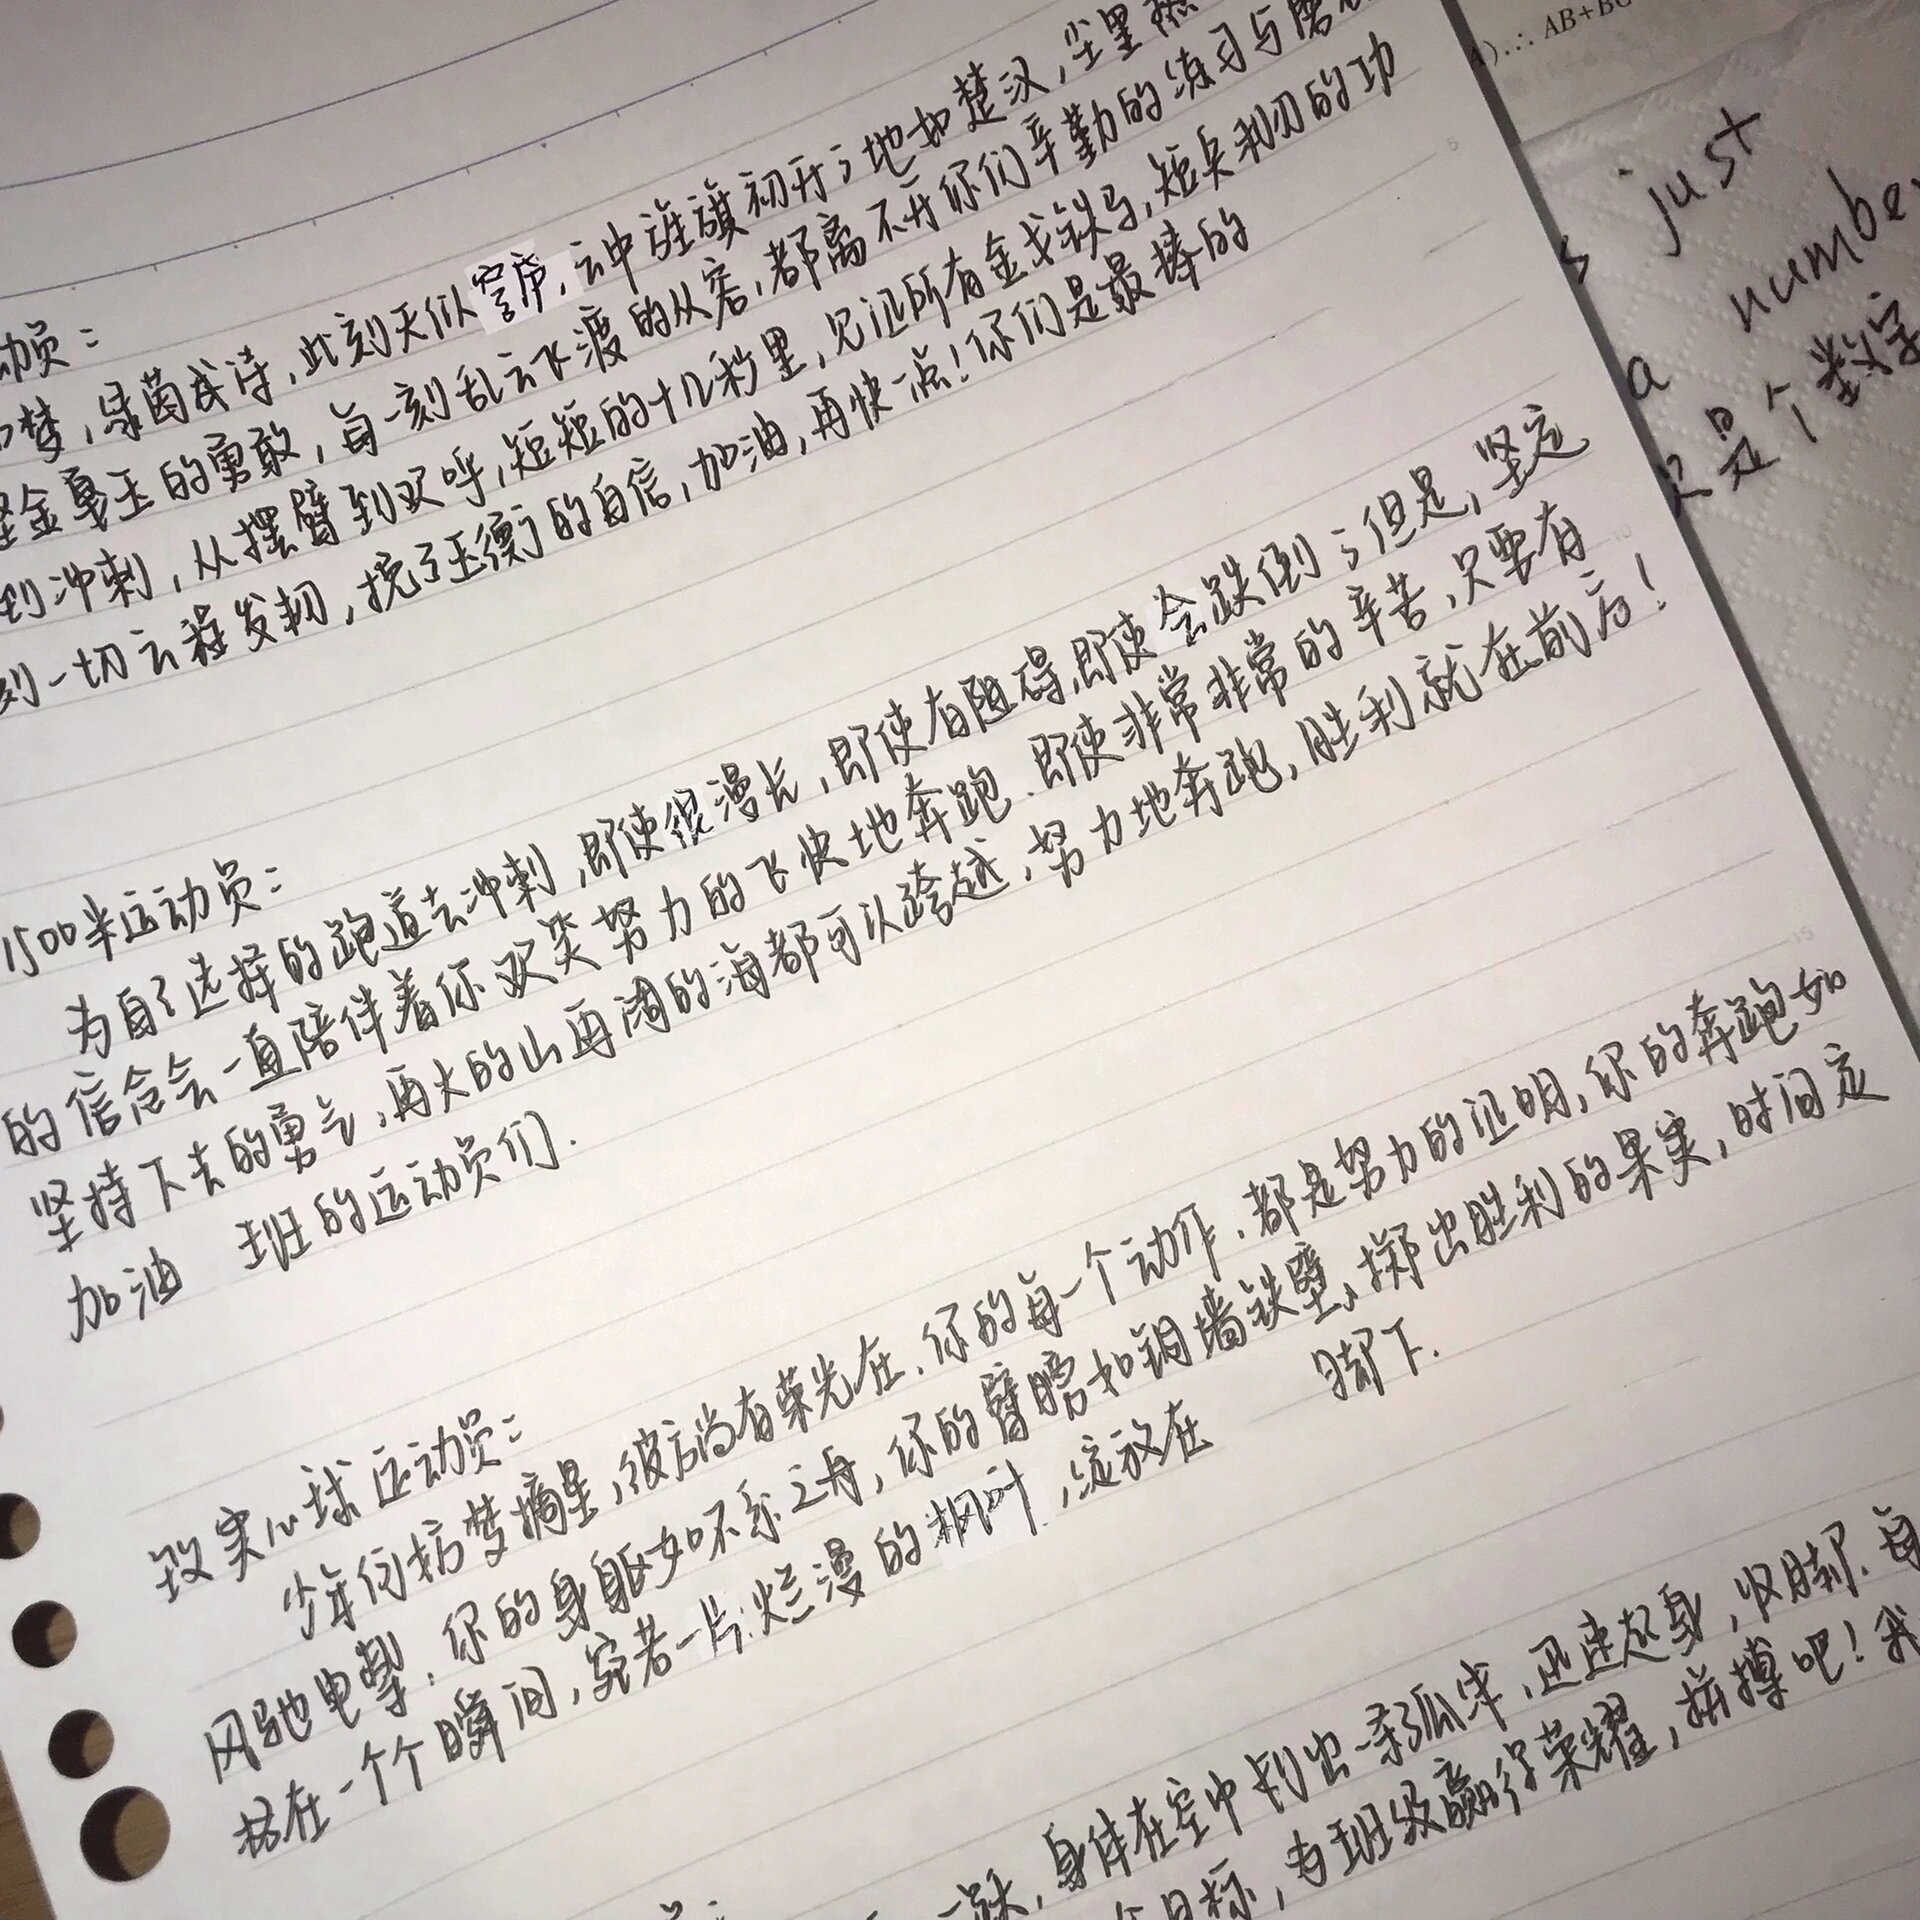 动员：
梦，绿茵成诗，此刻天似穹庐，云中旌旗初开；地如楚汉，尘里
金戛玉的勇敢，每一刻乱云飞渡的从容，都离不开你们辛勤的练习与磨
到冲刺，从摆臂到欢呼，短短的十几秒里，见证所有金戈铁马，短兵利刃的功
刻一切云程发轫，挽玉衡的自信，加油，再快一点！你们是最棒的
1500米运动员：
为自己选择的跑道去冲刺，即使很漫长，即使有阻碍，即使会跌倒；但是，坚定
的信念会一直陪伴着你欢笑努力的飞快地奔跑.即使非常非常的辛苦，只要有
坚持下去的勇气，再大的山再阔的海都可以跨越，努力地奔跑，胜利就在前方！
加油 班的运动员们.
致实心球运动员：
少年何妨梦摘星，彼方尚有荣光在.你的每一个动作.都是努力的证明，你的奔跑如
风驰电掣.你的身躯如不系之舟，你的臂膀如铜墙铁壁、掷出胜利的果实，时间定
格在一个个瞬间，宛若一片烂漫的枫叶，绽放在 脚下.
员：
一跃，身体在空中划出一条弧线，迅速起身，收脚.每
个目标，为班级赢得荣耀，拼搏吧！我
).∴ AB+BC
s just
a number
只是个数字
5
10
15